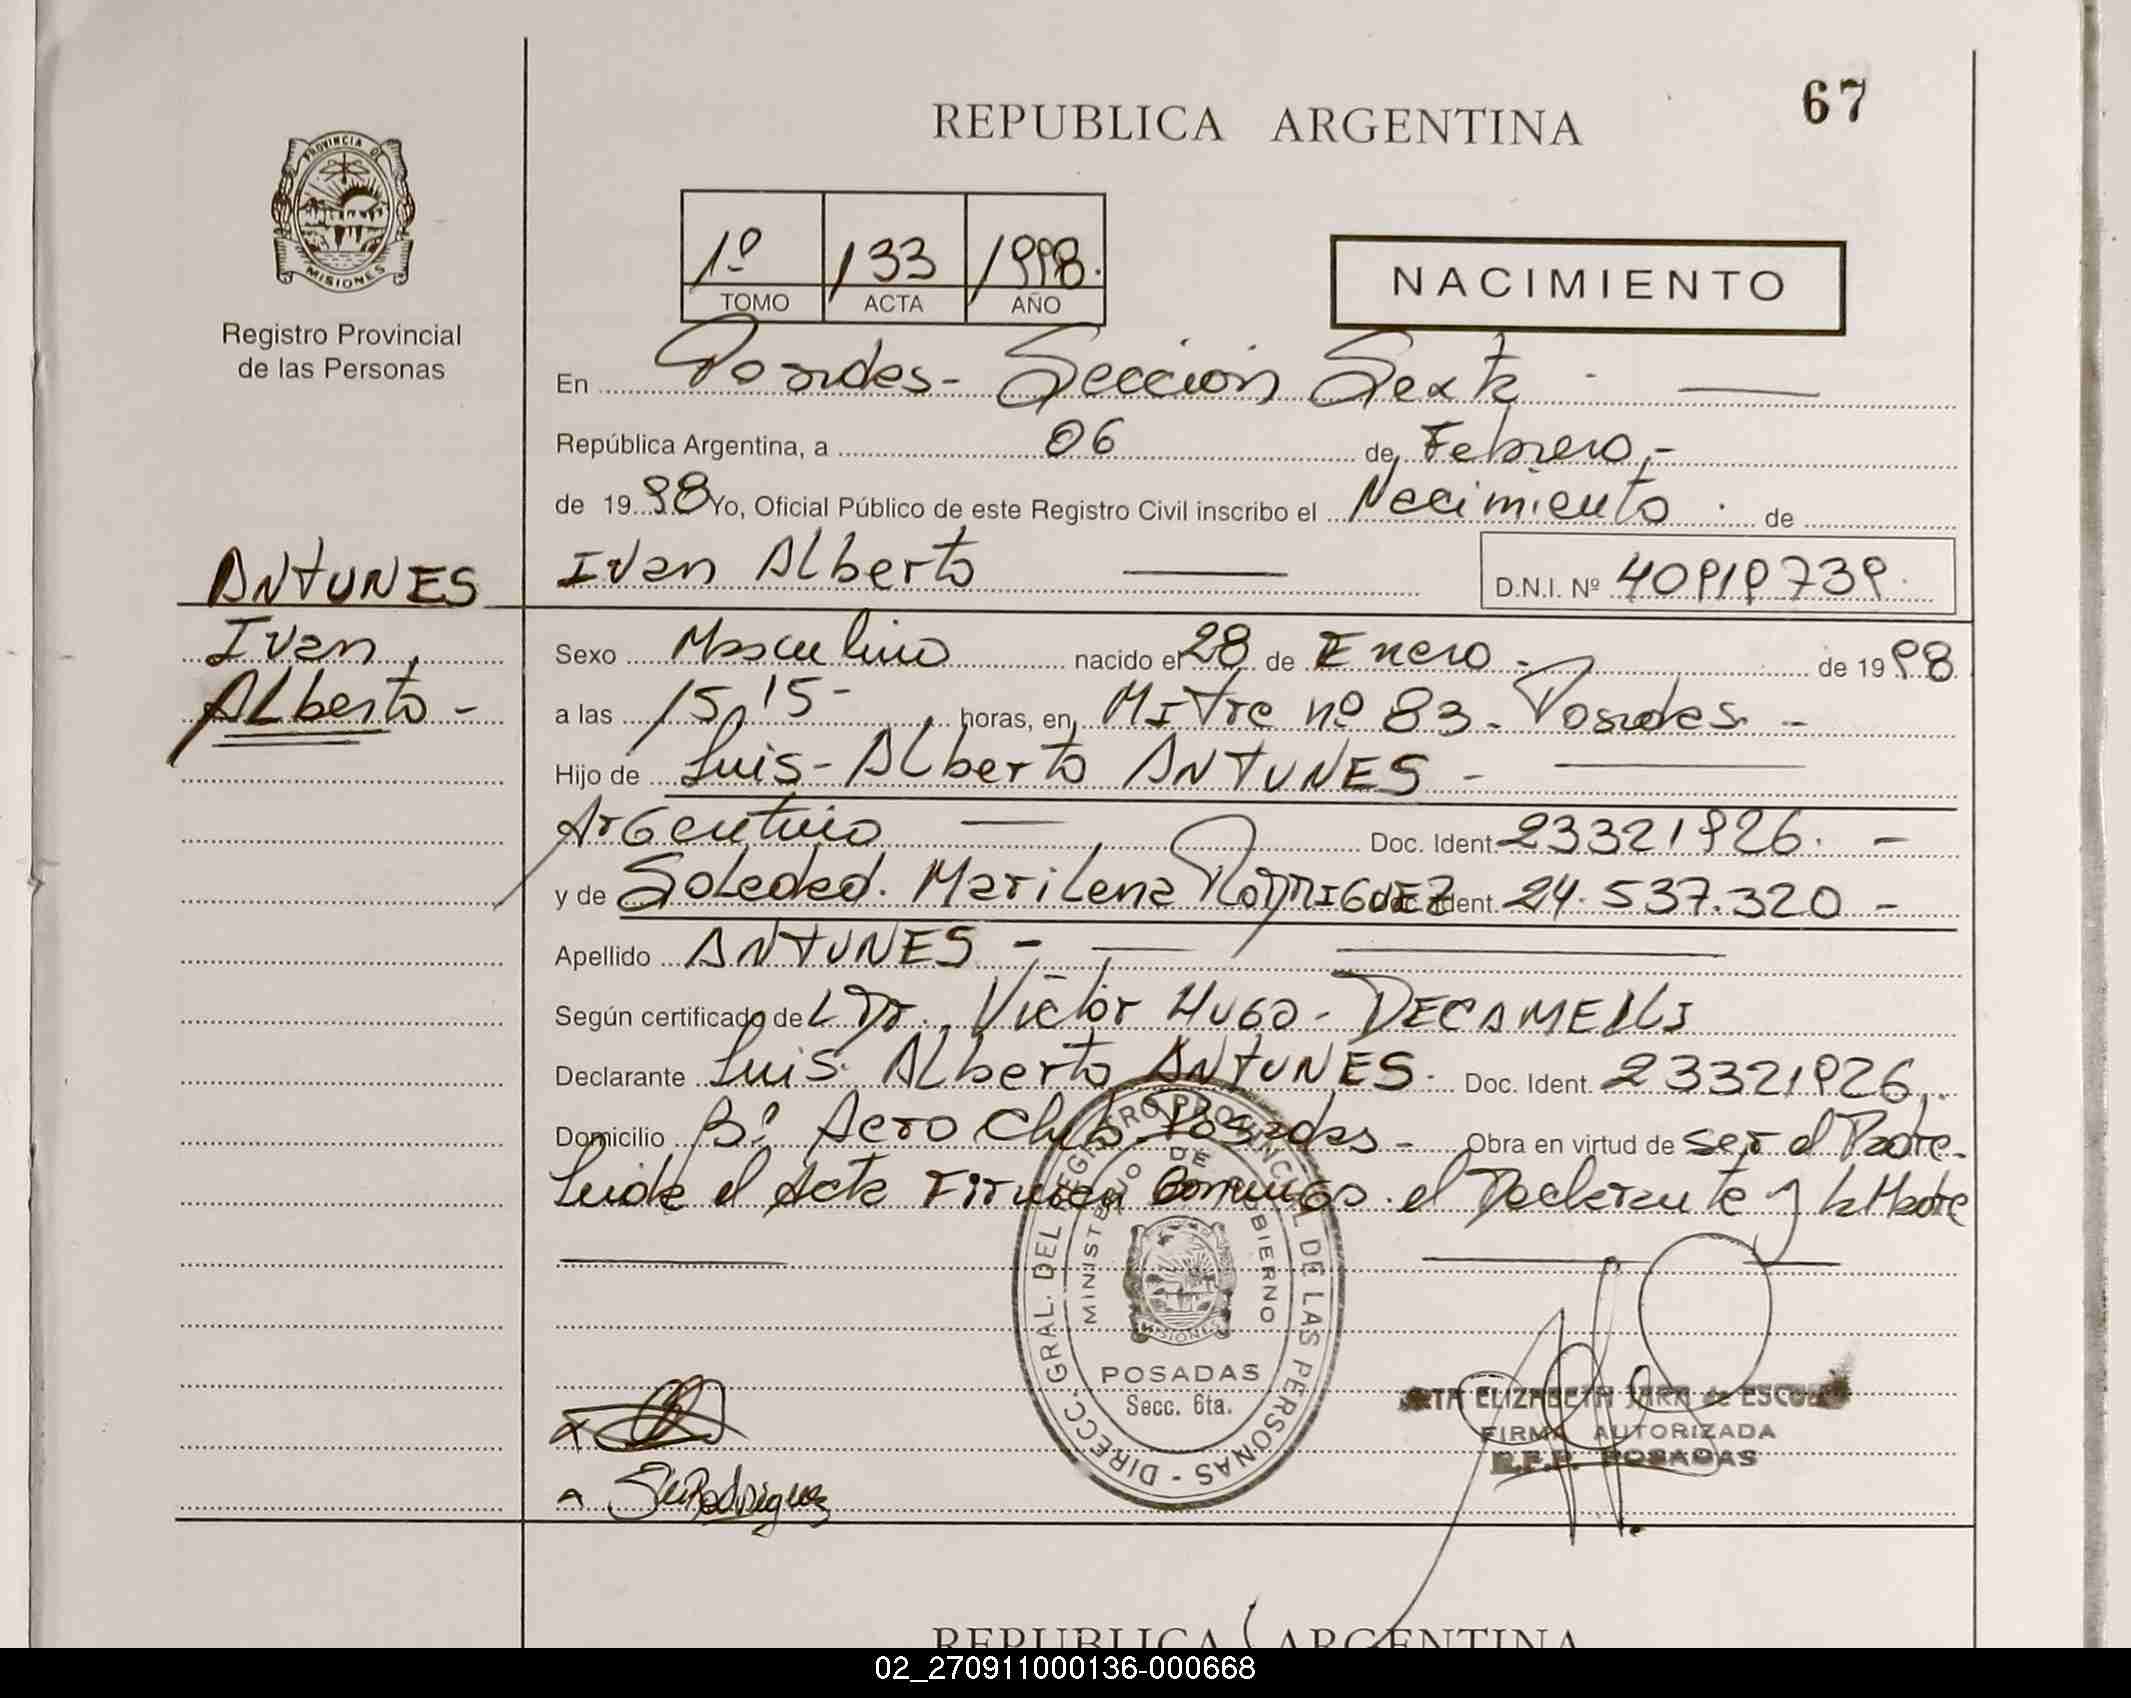 67
REPUBLICA ARGENTINA
PROVINCIA DE
MISIONES
Registro Provincial
de las Personas
1º 133 1998.
TOMO ACTA AÑO
NACIMIENTO
En Posadas - Sección Sexta . —
República Argentina, a 06 de Febrero.-
de 19 98 Yo, Oficial Público de este Registro Civil inscribo el Nacimiento . de
ANTUNES
Ivan
Alberto -
Ivan Alberto — D.N.I. Nº 40919739.
Sexo Masculino nacido el 28 de Enero . - de 19 98
a las 15,15 - horas, en Mitre nº 83 - Posadas. -
Hijo de Luis - Alberto ANTUNES - —
Argentino — Doc. Ident. 23321926. -
y de Soledad. Marilena RODRIGUEZ Doc. Ident. 24.537.320 -
Apellido ANTUNES - — —
Según certificado del Dr. Victor Hugo - DECAMELLI
Declarante Luis. Alberto ANTUNES. Doc. Ident. 23321926.
Domicilio Bº Aero Club Posadas - Obra en virtud de ser el Padre.
Leida el Acta Firman conmigo. el Declarante y la Madre
DIRECC. GRAL. DEL REGISTRO PROVINCIAL DE LAS PERSONAS -
MINISTERIO DE GOBIERNO
MISIONES
POSADAS
Secc. 6ta.
ELIZABETH JARA de
FIRMA AUTORIZADA
POSADAS
Rodriguez
REPUBLICA ARGENTINA
02_270911000136-000668